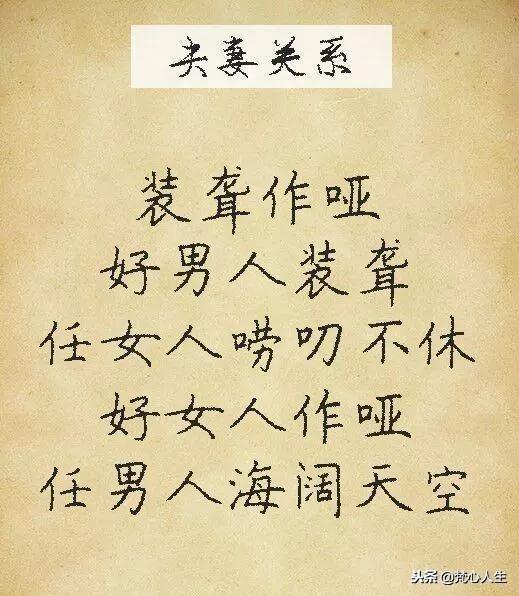 夫妻关系
装聋作哑
好男人装聋
任女人唠叨不休
好女人作哑
任男人海阔天空
头条@梵心人生